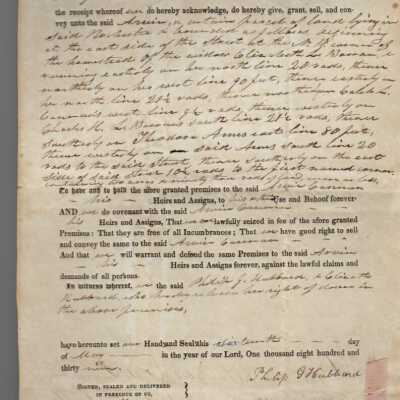 the receipt whereof we do hereby acknowledge, do hereby give, grant, sell, and con-
vey unto the said Arvin, a certain parcel of land lying in
said & bounded as follows, beginning
at the east side of the street at the corner of
the homestead of the widow Elizabeth L.
running easterly on her north line 28 rods, thence
northerly on his west line 90 feet, thence westerly on
his north line 21½ rods, thence northerly on Caleb L.
west line rods, thence westerly on
Charles K. south line 21½ rods, thence
southerly on Theodore Arms east line 80 feet,
thence westerly on said Arms south line 20
rods to the said Street, thence Southerly on the east
side of said Street 10½ rods to the first named corner.
To have and to hold the afore granted premises to the said Arvin Cannon
his Heirs and Assigns, to his Use and Behoof forever
AND we do covenant with the said Arvin
his Heirs and Assigns, That we lawfully seized in fee of the afore granted
Premises: That they are free of all Incumbrances; That we have good right to sell
and convey the same to the said Arvin
And that we will warrant and defend the same Premises to the said Arvin
his Heirs and Assigns forever, against the lawful claims and
demands of all persons.
In witness whereof, we the said Philip G. Hubbard, & Elizabeth
Hubbard, who hereby her right of dower in
the above premises,
have hereunto set our Hand and Seal this day
of May in the year of our Lord, One thousand eight hundred and
thirty nine
Philip G Hubbard
SIGNED, SEALED AND DELIVERED
IN PRESENCE OF US,